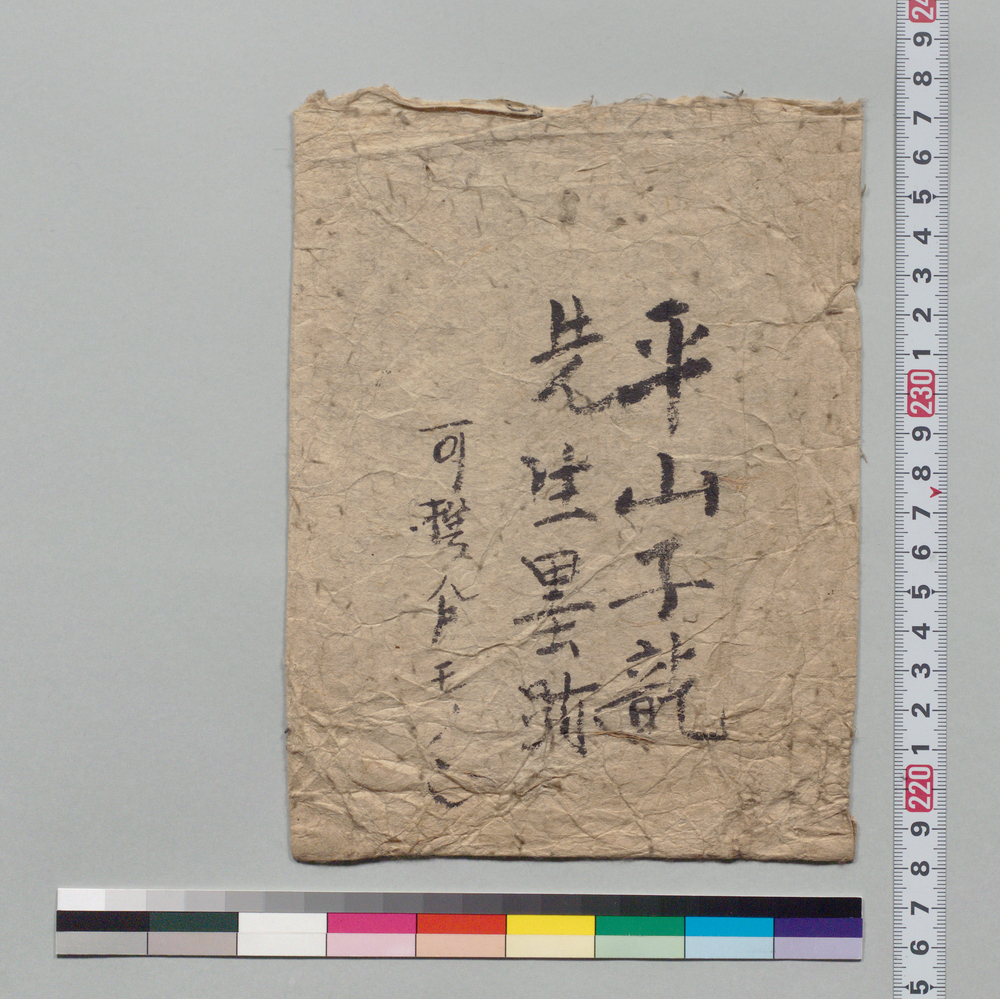 平山子龍
先生墨跡
可
9
8
7
6
5
4
3
2
1
230
9
8
7
6
5
4
3
2
1
220
9
8
7
6
5